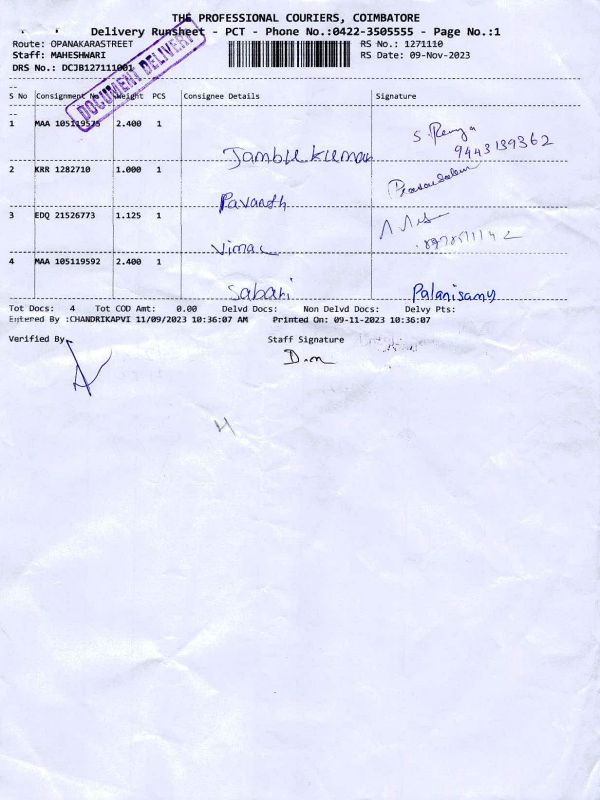 THE PROFESSIONAL COURIERS, COIMBATORE
Delivery Runsheet - PCT - Phone No.:0422-3505555 - Page No.:1
Route: OPANAKARASTREET
RS No.: 1271110
Staff: MAHESHWARI
RS Date: 09-Nov-2023
DRS No.: DCJB127111001
DOCUMENT DELIVERY
S No Consignment No Weight PCS Consignee Details Signature
1 MAA 105119575 2.400 1
S. Remya
9443139362
Jambukumar
2 KRR 1282710 1.000 1
Pavanth
3 EDQ 21526773 1.125 1
Vimal
4 MAA 105119592 2.400 1
Sabari Palanisamy
Tot Docs: 4 Tot COD Amt: 0.00 Delvd Docs: Non Delvd Docs: Delvy Pts:
Entered By :CHANDRIKAPVI 11/09/2023 10:36:07 AM Printed On: 09-11-2023 10:36:07
Verified By Staff Signature
4